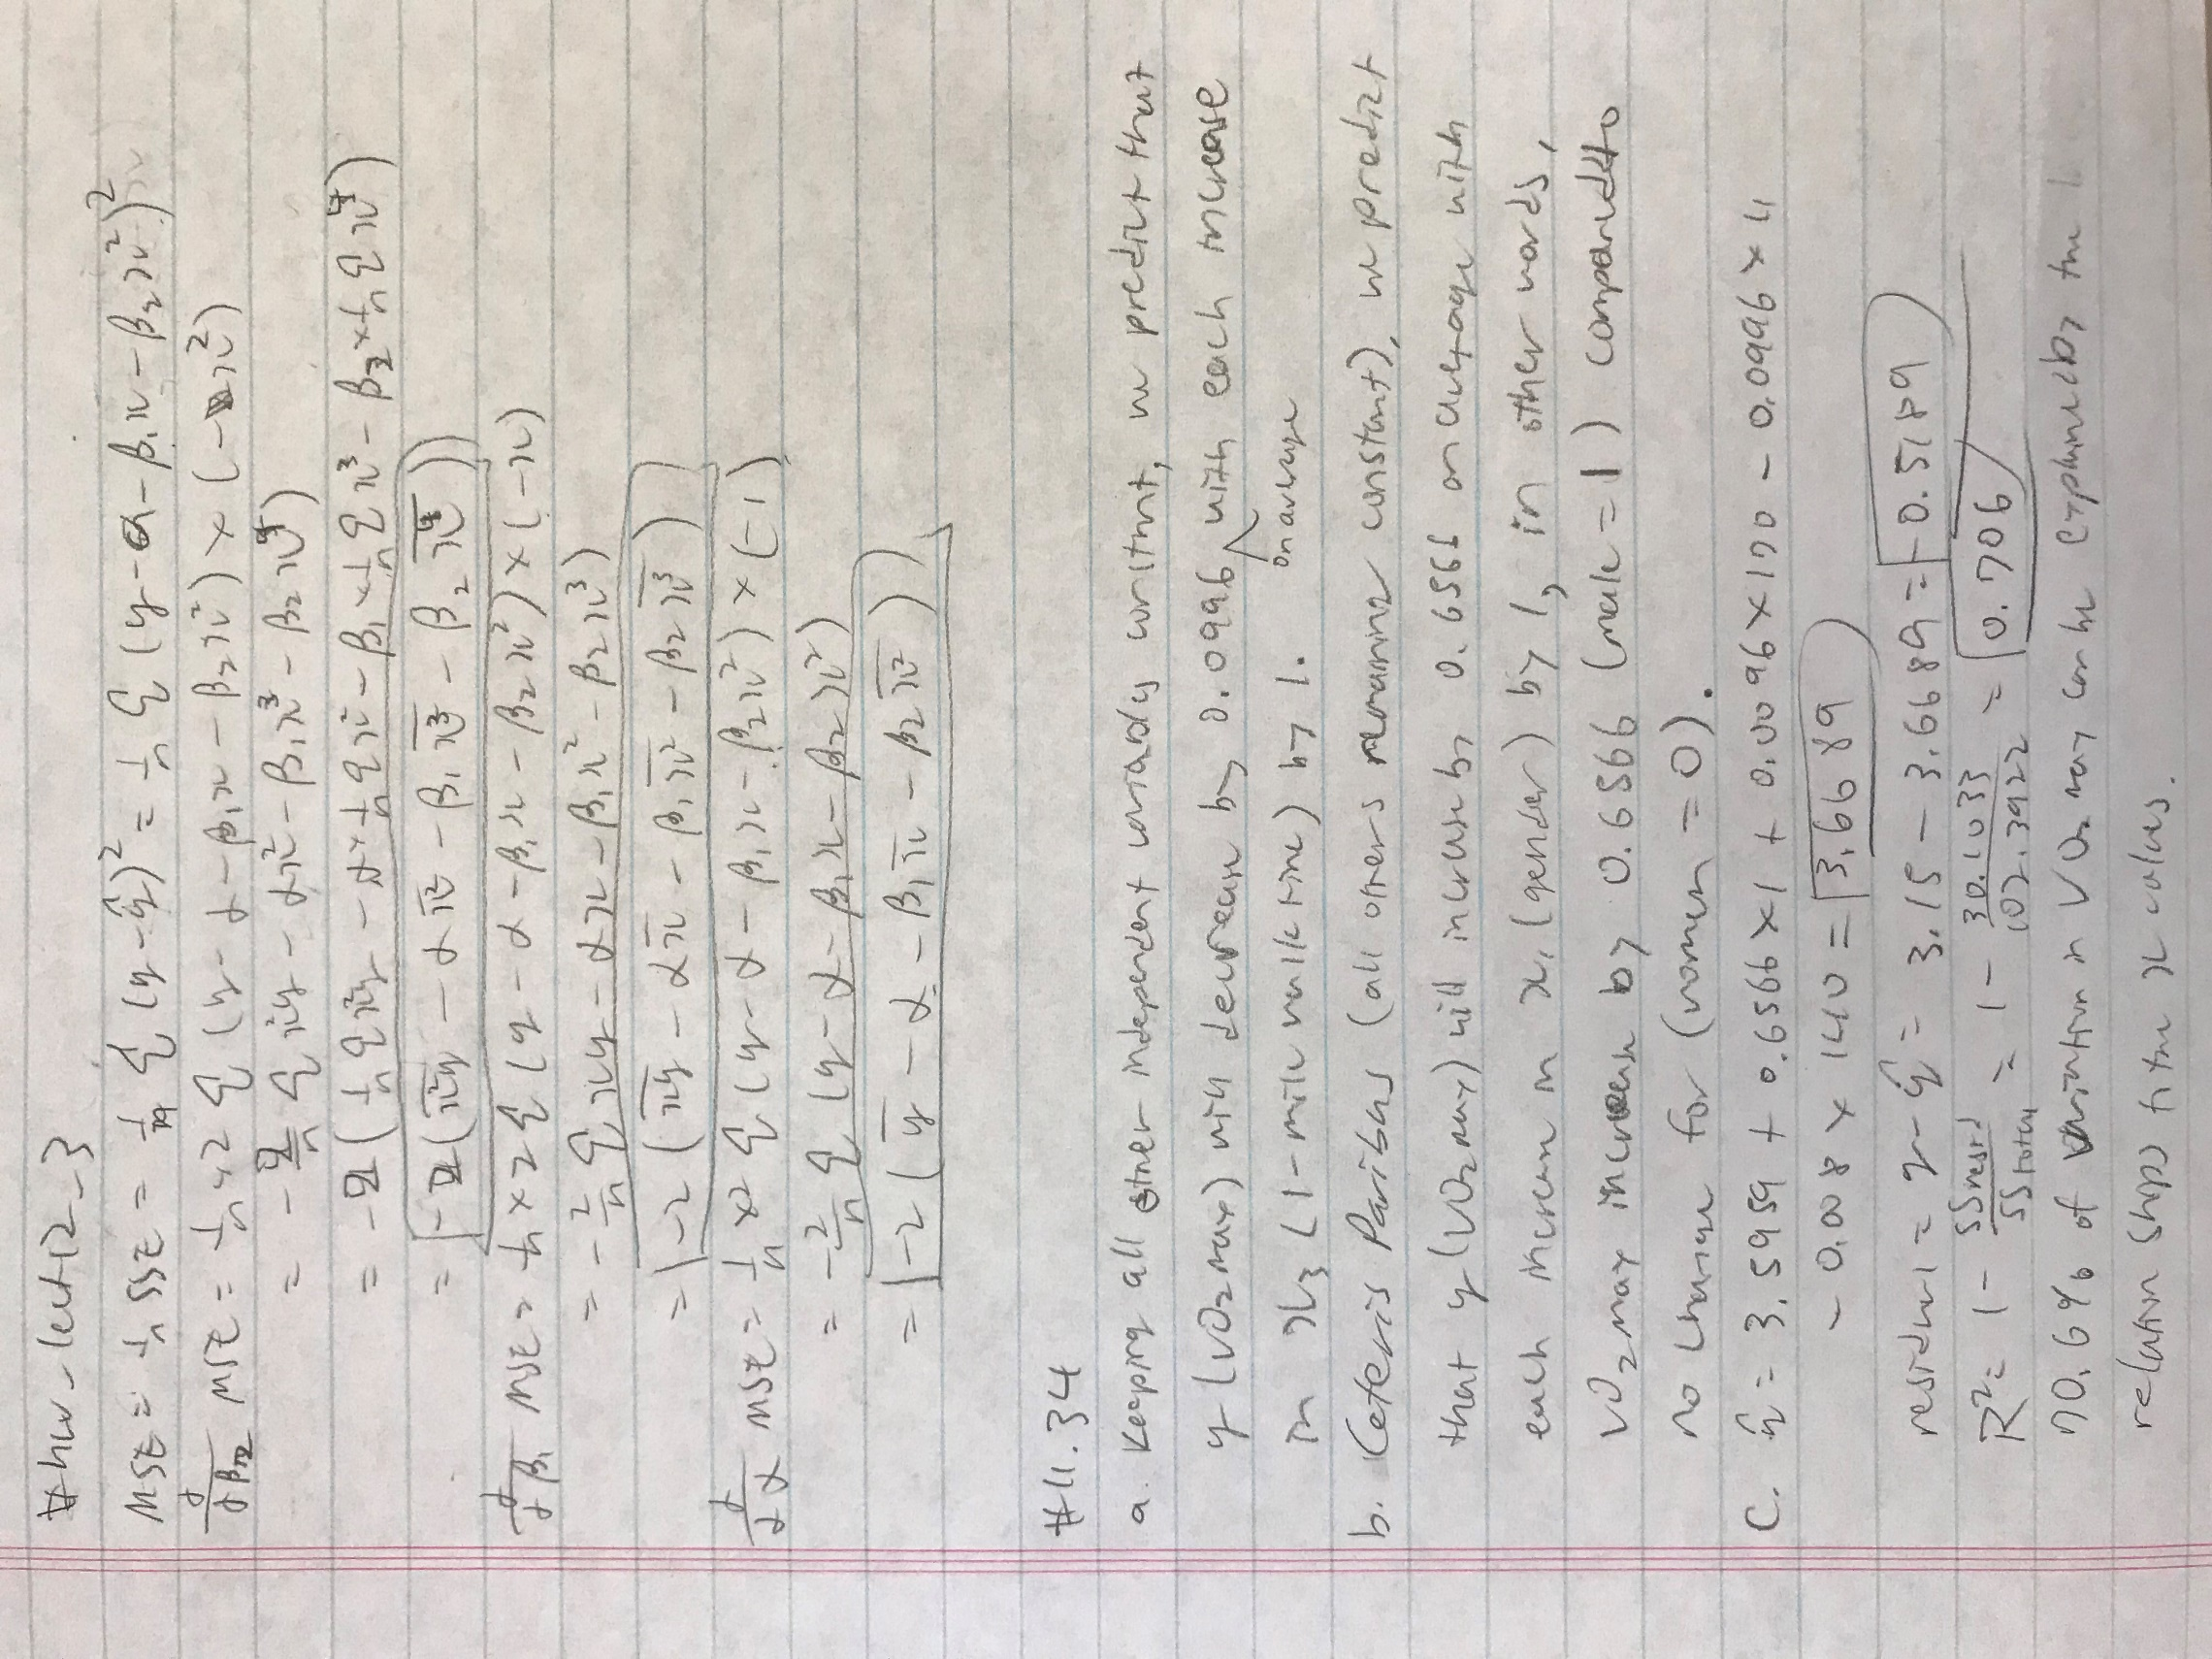 #hw-lect12-3
MSE = 1/n SSE = 1/n Σ (y-ŷ)² = 1/n Σ (y-α-β₁x-β₂x²)²
∂/∂β₂ MSE = 1/n x2 Σ (y-α-β₁x-β₂x²) x (-x²)
= -2/n Σ x²y - αx² - β₁x³ - β₂x⁴)
= -2 (1/n Σ x²y - α x 1/n Σ x² - β₁ x 1/n Σ x³ - β₂ x 1/n Σ x⁴)
= -2 (x̅²̅y̅ - α x̅²̅ - β₁ x̅³̅ - β₂ x̅⁴̅))
∂/∂β₁ MSE = 1/n x 2 Σ (y - α - β₁x - β₂x²) x (-x)
= -2/n Σ xy - αx - β₁x² - β₂x³)
= -2 (x̅y̅ - αx̅ - β₁x̅²̅ - β₂x̅³̅)
∂/∂α MSE = 1/n x2 Σ (y - α - β₁x - β₂x²) x (-1)
= -2/n Σ (y - α - β₁x - β₂x²)
= -2 (y̅ - α - β₁x̅ - β₂x̅²̅)
#11.34
a. Keeping all other independent variables constant, we predict that
y (VO₂max) will decrease by 0.0996 on average with each increase
in x₃ (1-mile walk time) by 1.
b. Ceteris Paribus (all others remaining constant), we predict
that y (VO₂max) will increase by 0.6566 on average with
each increase in x₁ (gender) by 1, in other words,
VO₂max increase by 0.6566 (male = 1) compared to
no change for (women = 0).
C. ŷ = 3.5959 + 0.6566 x 1 + 0.0096 x 170 - 0.0996 x 11
- 0.008 x 140 = 3.6689
residual = y - ŷ = 3.15 - 3.6689 = -0.5189
R² = 1 - SSresid/SStotal = 1 - 30.1033/102.3922 = 0.706
70.6% of variation in VO₂ max can be explained by the
relationships fitne x values.